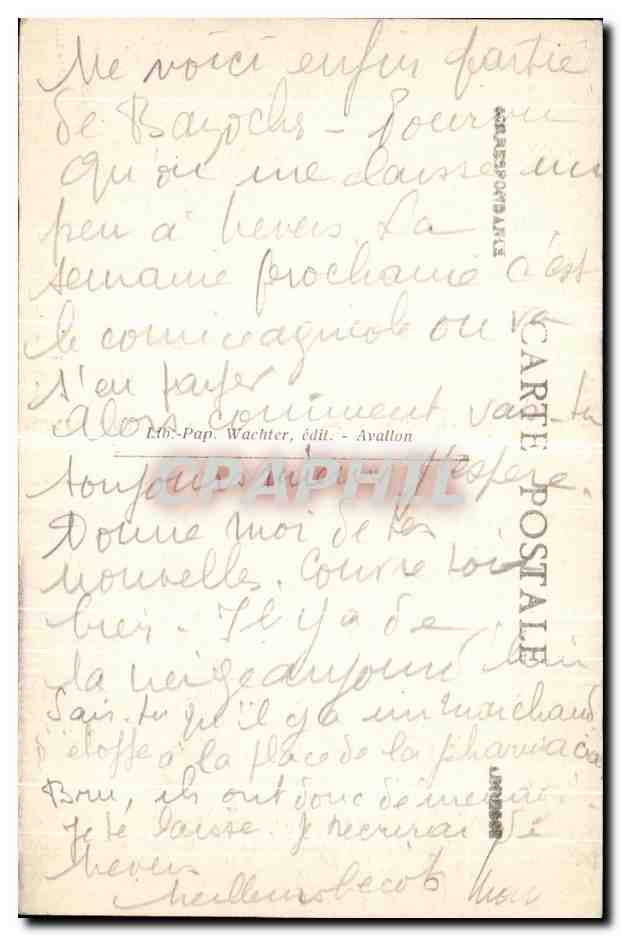 Me voici enfin partie
de Bazoches - Pourvu
qu'on me laisse un
peu à Nevers. La
semaine prochaine c'est
le comice agricole on va
s'en payer
Alors comment vas-tu
Lib.-Pap. Wachter, édit. - Avallon
toujours mieux j'espère.
CPAPHIL
Donne moi de tes
nouvelles. Couvre toi
bien - Il y a de
la neige aujourd'hui
Sais-tu qu'il y a un marchand
d'étoffe à la place de la pharmacie
Bru, ils ont donc déménagé.
Je te laisse. Je t'écrirai de
Nevers
Meilleurs bécots
CORRESPONDANCE
CARTE POSTALE
ADRESSE